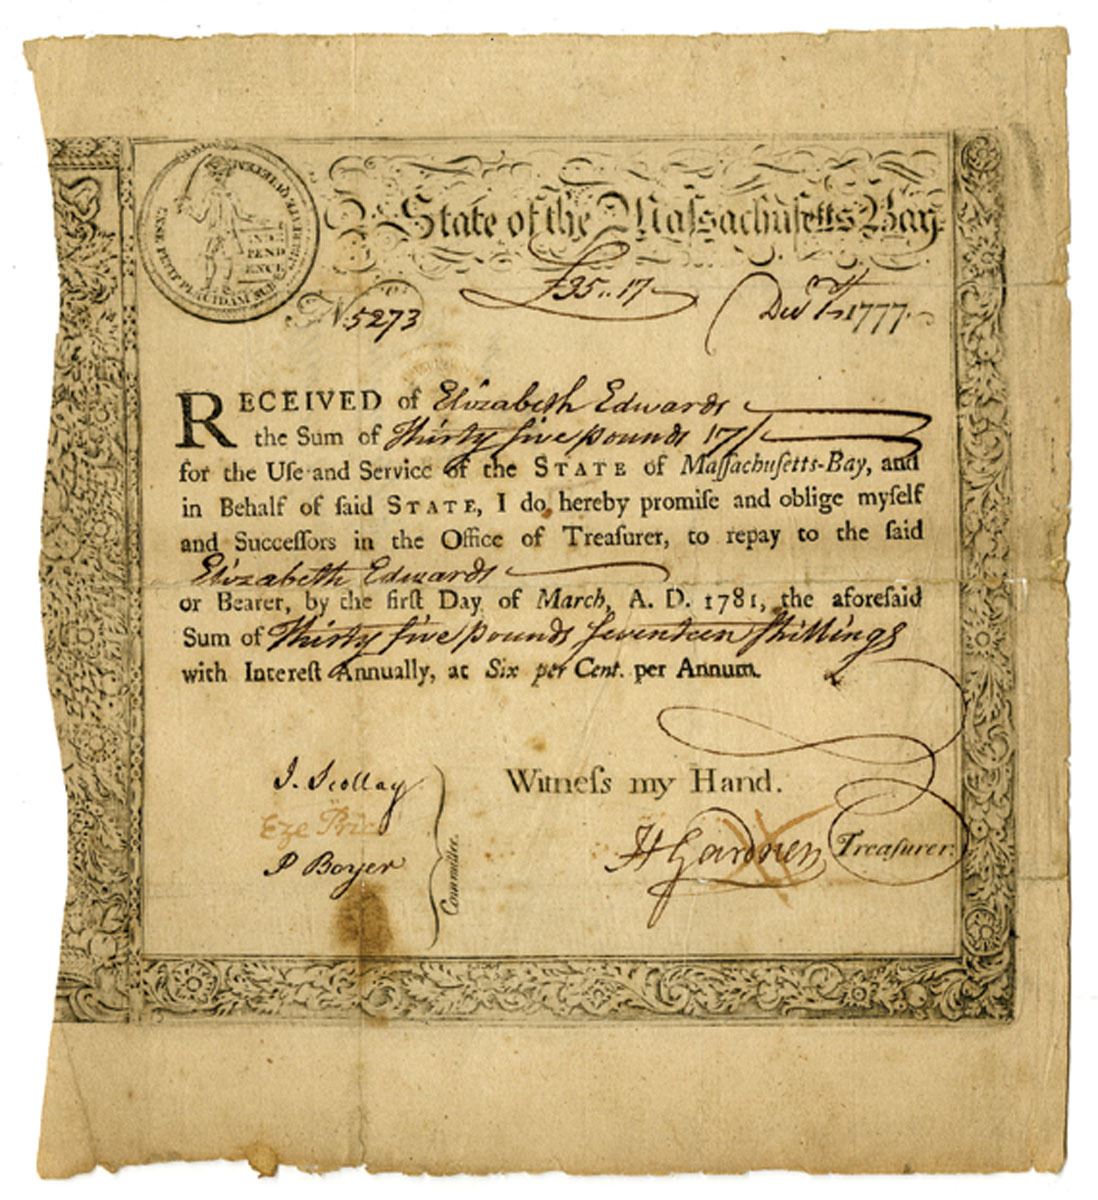 ENSE PETIT PLACIDAM SUB LIBERTATE QUIETEM
INDE
PEND
ENCE
State of the Maſsachuſetts Bay.
£35.. 17
N. 5273
Decr 1st 1777.
RECEIVED of Elizabeth Edwards
the Sum of Thirty five pounds 17/
for the Uſe and Service of the STATE of Maſſachuſetts-Bay, and
in Behalf of ſaid STATE, I do hereby promiſe and oblige myſelf
and Succeſſors in the Office of Treaſurer, to repay to the ſaid
Elizabeth Edwards
or Bearer, by the firſt Day of March, A. D. 1781, the aforeſaid
Sum of Thirty five pounds ſeventeen ſhillings
with Intereſt Annually, at Six per Cent. per Annum.
Witneſs my Hand.
J. Scollay
Eze Price
P Boyer
Committee.
H Gardner Treaſurer.